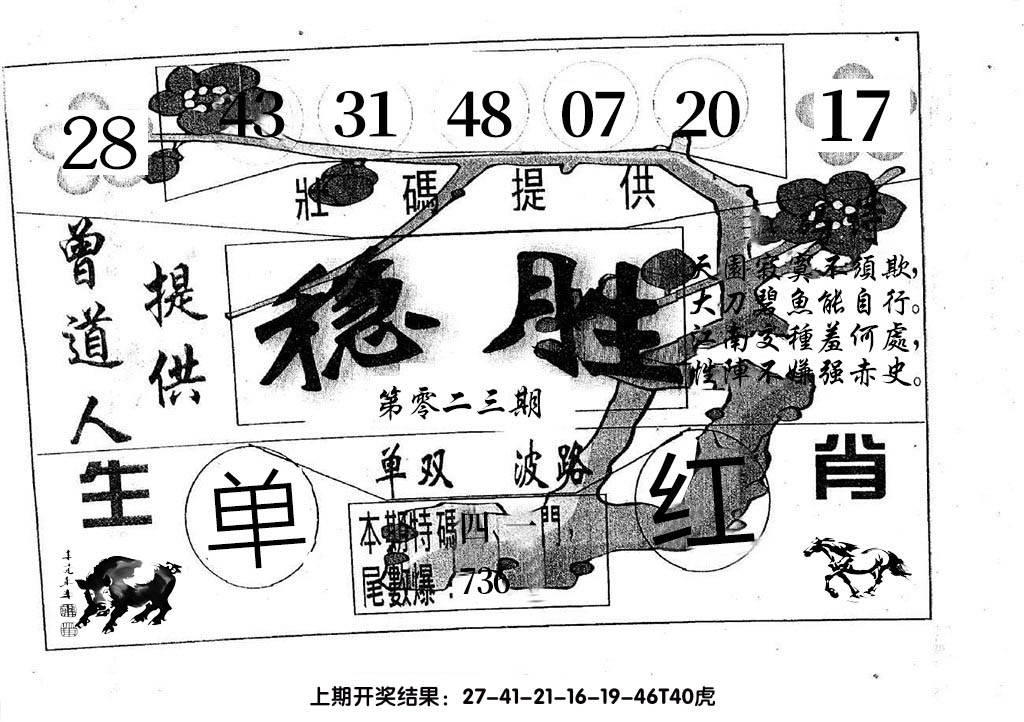 28 43 31 48 07 20 17
壯碼提供
特
曾道人
提供
稳胜
第零二三期
天園寂寞不須欺，
大刀碧魚能自行。
江南交種羞何處，
性陣不嫌强赤史。
生
肖
单双 波路
单
红
本期特碼四、一門，
尾數爆：736
上期开奖结果：27-41-21-16-19-46T40虎